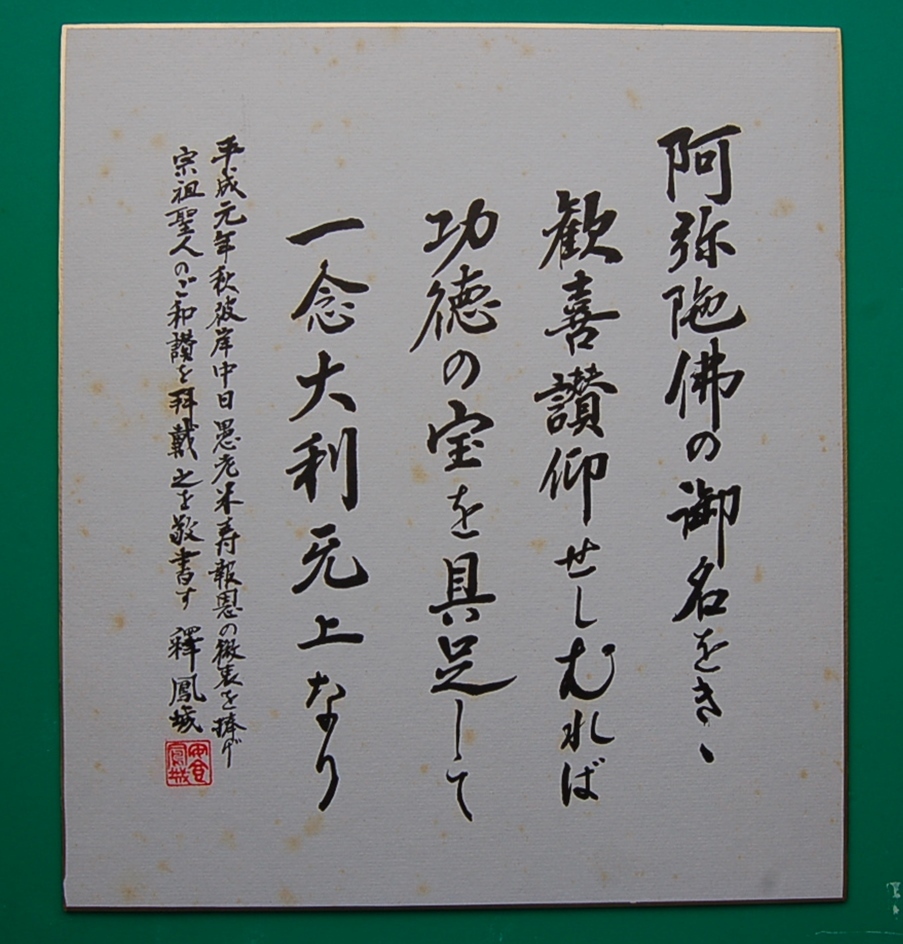 阿弥陀佛の御名をきゝ
歓喜讃仰せしむれば
功徳の宝を具足して
一念大利无上なり
平成元年秋彼岸中日愚老米寿報恩の微衷を捧げ
宗祖聖人のご和讃を拜載之を敬書す 釋鳳城